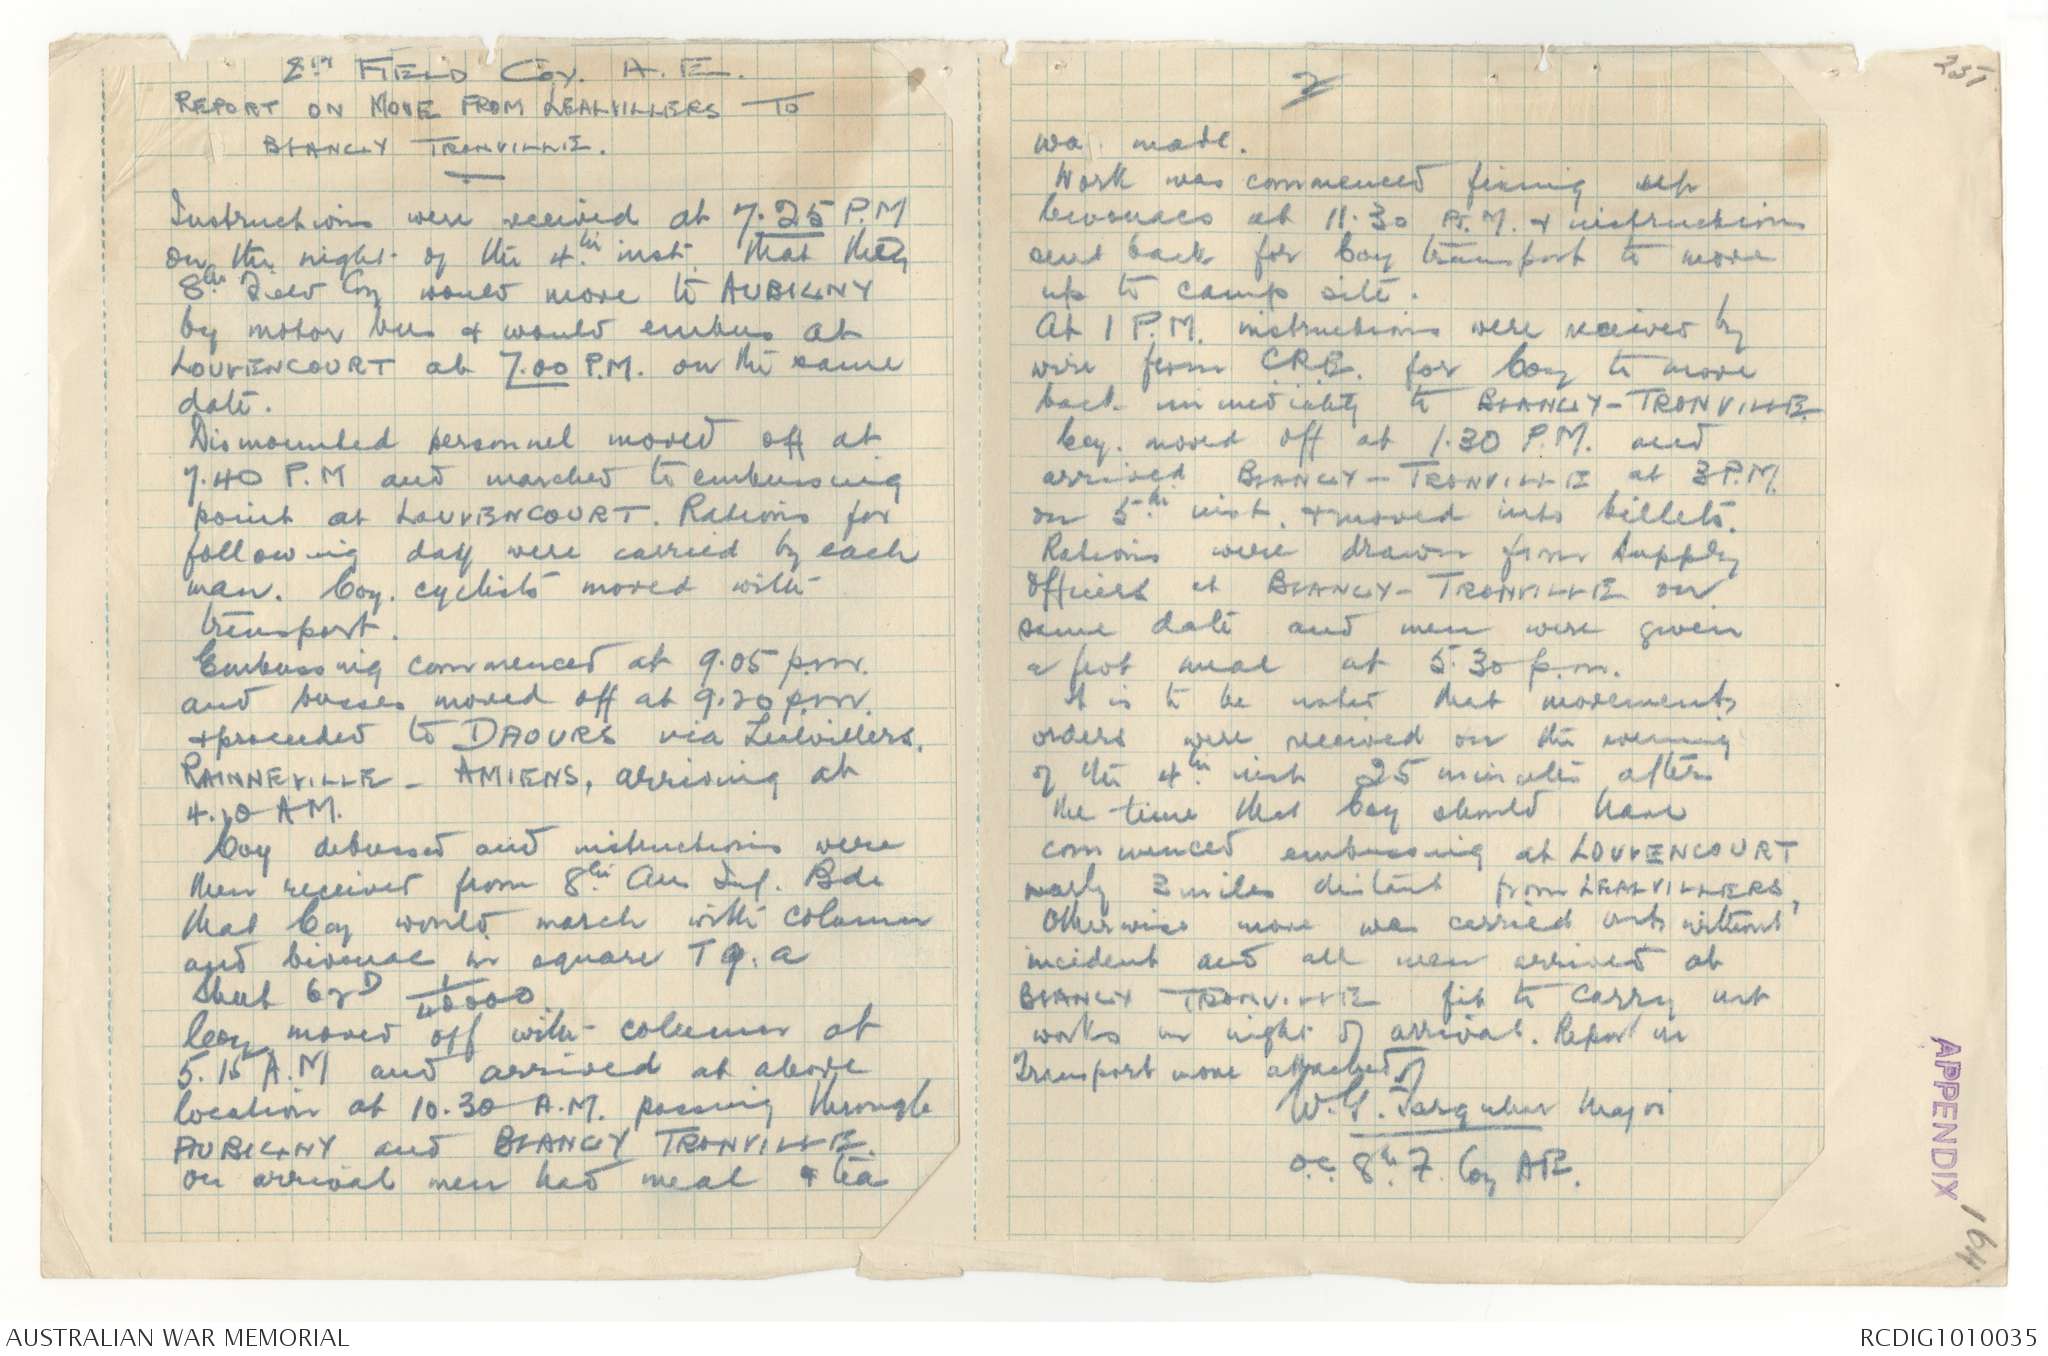 8th FIELD COY. A.E.
REPORT ON MOVE FROM LEALVILLERS TO
BLANGY TRONVILLE.
Instructions were received at 7.25 P.M
on the night of the 4th inst that the
8th Field Coy would move to AUBIGNY
by motor bus & would embus at
LOUVENCOURT at 7.00 P.M. on the same
date.
Dismounted personnel moved off at
7.40 P.M and marched to embussing
point at LOUVENCOURT. Rations for
following day were carried by each
man. Coy. cyclists moved with
transport.
Embussing commenced at 9.05 p.m.
and busses moved off at 9.20 p.m.
& proceeded to DAOURS via Lealvillers,
RAINNEVILLE - AMIENS, arriving at
4.10 AM.
Coy debussed and instructions were
then received from 8th Aus Inf. Bde
that Coy would march with column
and bivouac in square T 9. a
Sheet 62D 1/40000.
Coy moved off with column at
5.15 A.M and arrived at above
location at 10.30 A.M. passing through
AUBIGNY and BLANGY TRONVILLE.
On arrival men had meal & tea
2
257
was made.
Work was commenced fixing up
bivouacs at 11.30 A.M. & instructions
sent back for Coy transport to move
up to camp site.
At 1 P.M. instructions were received by
wire from CRE. for Coy to move
back immediately to BLANGY-TRONVILLE.
Coy. moved off at 1.30 P.M. and
arrived BLANGY-TRONVILLE at 3 P.M.
on 5th inst. & moved into billets.
Rations were drawn from Supply
Officers at BLANGY-TRONVILLE on
same date and men were given
a hot meal at 5.30 p.m.
It is to be noted that movements
orders were received on the evening
of the 4th inst 25 minutes after
the time that Coy should have
commenced embussing at LOUVENCOURT
nearly 3 miles distant from LEALVILLERS,
Otherwise move was carried out without
incident and all men arrived at
BLANGY TRONVILLE fit to carry out
works on night of arrival. Report on
Transport move attached
W. Farquhar Major
O.C. 8th F. Coy A.E.
APPENDIX
164
AUSTRALIAN WAR MEMORIAL
RCDIG1010035